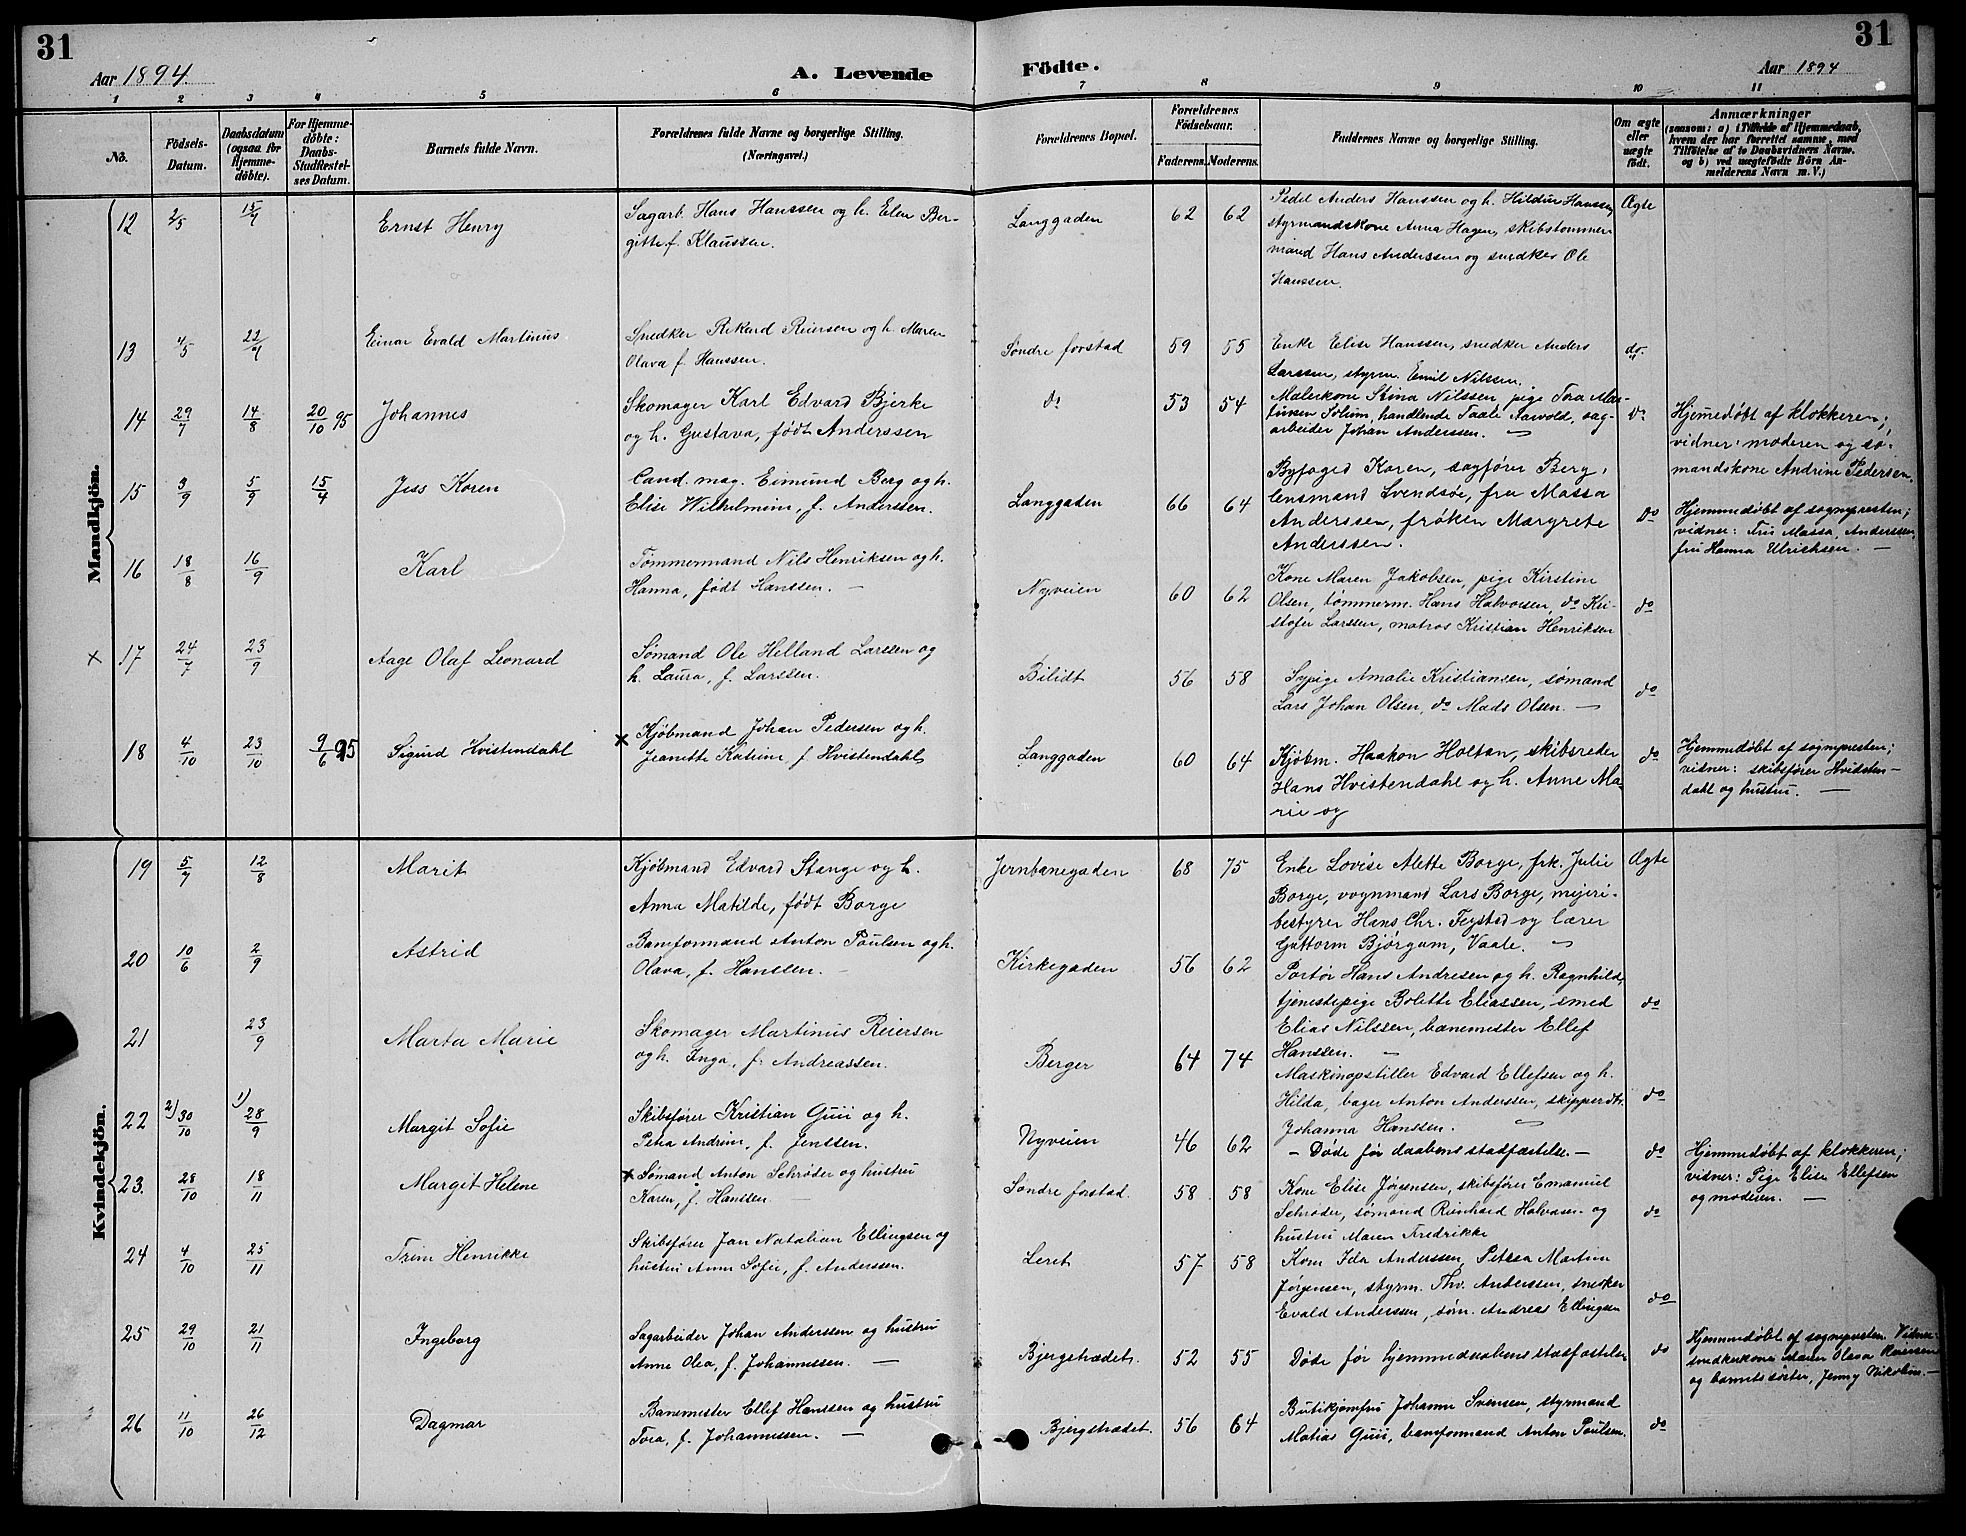 31
Aar 1894.
A. Levende
Födte.
Aar 1894
31
1 2 3 4 5 6 7 8 9 10 11
No.
Födsels-
Datum.
Daabsdatum
(ogsaa for
Hjemme-
döbte).
For Hjemme-
döbte:
Daabs-
Stadfæstel-
ses Datum.
Barnets fulde Navn.
Forældrenes fulde Navne og borgerlige Stilling.
(Næringsvei.)
Forældrenes Bopæl.
Forældrenes
Födselsaar.
Faderens. Moderens.
Faddernes Navne og borgerlige Stilling.
Om ægte
eller
uægte
födt.
Anmærkninger
(saasom: a) i Tilfælde af Hjemmedaab,
hvem der har forrettet samme, med
Tilföielse af to Daabsvidners Navne,
og b) ved uægtefödte Börn An-
melderens Navn m. V.)
Mandkjön.
12 2/5 15/7 Ernst Henry
Sagarb. Hans Hanssen og h. Elen Ber-
gitte f. Klaussen.
Langgaden 62 62
Pedel Anders Hanssen og h. Hildur Hanssen,
styrmandskone Anna Hagen, skibstømmer-
mand Hans Anderssen og snedker Ole
Hanssen.
Ægte
13 4/5 22/7 Einar Evald Martinus
Snedker Rikard Reiersen og h. Maren
Olava f. Hanssen.
Søndre forstad 59 55
Enke Elise Hanssen, snedker Anders
Larssen, styrm. Emil Nilssen.
do.
14 29/7 14/8 20/10 95 Johannes
Skomager Karl Edvard Bjerke
og h. Gustava, født Anderssen
do 53 54
Malerkone Stina Nilssen, pige Tora Mar-
tinsen Solum, handlende Taale Aarvold, sag-
arbeider Johan Anderssen. —
do
Hjemedøbt af klokkeren;
vidner: moderen og sø-
mandskone Andrine Pedersen.
15 3/9 5/9 15/4 Jess Koren
Cand. mag. Eimund Berg og h.
Elise Wilhelmine, f. Anderssen.
Langgaden 66 64
Byfoged Koren, sagfører Berg,
lensmand Svendsøe, fru Massa
Anderssen, frøken Margrete
Anderssen.
do
Hjemmedøbt af sognepresten;
vidner: Fru Massa Anderssen,
fru Hanna Ulrichsen. —
16 18/8 16/9 Karl
Tømmermand Nils Henriksen og h.
Hanna, født Hanssen. —
Nyveien 60 62
Kone Maren Jakobsen, pige Kirstine
Olsen, tømmerm. Hans Halvorsen, do Kri-
stofer Larssen, matros Kristian Henriksen
do
× 17 24/7 23/9 Aage Olaf Leonard
Sømand Ole Helland Larssen og
h. Laura, f. Larssen.
Bilidt 56 58
Sypige Amalie Kristiansen, sømand
Lars Johan Olsen, do Mads Olsen. —
do
18 4/10 23/10 9/6 95 Sigurd Hvistendahl
× Kjøbmand Johan Pedersen og h.
Jeanette Katrine f. Hvistendahl
Langgaden 60 64
Kjøbm. Haakon Holtan, skibsreder
Hans Hvistendahl og h. Anne Ma-
rie og
do
Hjemmedøbt af sognpresten;
vidner: skibsfører Hvidsten-
dahl og hustru. —
Kvindekjön.
19 5/7 12/8 Marit
Kjøbmand Edvard Stange og h.
Anna Matilde, født Borge
Jernbanegaden 68 75
Enke Lovise Alette Borge, frk. Julie
Borge, vognmand Lars Borge, mejeri-
bestyrer Hans Chr. Fegstad og lærer
Guttorm Bjørgum, Vaale. —
Ægte
20 10/6 2/9 Astrid
Baneformand Anton Poulsen og h.
Olava, f. Hanssen. —
Kirkegaden 56 62
Portør Hans Andresen og h. Ragnhild,
tjenestepige Bolette Eliassen, smed
Elias Nilssen, banemester Ellef
Hanssen. —
do
21 23/9 Marta Marie
Skomager Martinus Reiersen
og h. Inga, f. Andreassen.
Berger 64 74
Maskinopstiller Edvard Ellefsen og h.
Hilda, bager Anton Anderssen, skipperdtr.
Johanna Hanssen. —
do
22 2) 30/10 1) 28/9 Margit Sofie
Skibsfører Kristian Guii og h.
Petra Andrine, f. Jenssen.
Nyveien 46 62
— Døde før daabens stadfæstelse. —
do
Hjemmedøbt af klokkeren;
vidner: Pige Elise Ellefsen
og moderen. —
23. 28/10 18/11 Margit Helene
× Sømand Anton Schrøder og hustru
Karen, f. Hanssen —
Søndre forstad. 58 58
Kone Elise Jørgensen, skibsfører Emanuel
Schrøder, sømand Reinhard Halvorsen og
hustru Maren Fredrikke
do
24 4/10 25/11 Trine Henrikke
Skibsfører Jan Natalian Ellingsen og
hustru Anne Sofie, f. Anderssen.
Leret 57 58
Kone Ida Anderssen, Petrea Martine
Jørgensen, styrm. Thv. Anderssen, snedker
Evald Anderssen, søm. Andreas Ellingsen
do
25 29/10 21/11 Ingeborg
Sagarbeider Johan Anderssen og hustru
Anne Olea, f. Johannessen. —
Bjergstrædet. 52 55
Døde før hjemmedaabens stadfæstelse
do
Hjemmedøbt af sognepresten. Vidner:
snedkerkone Maren Olava Reiersen
og barnets søster, Jenny Nikoline. —
26 11/10 26/12 Dagmar
Banemester Ellef Hanssen og hustru
Tora, f. Johannessen. —
Bjergstrædet. 56 64
Butikjomfru Johanne Svensen, styrmand
Matias Guii, baneformand Anton Poulsen.
do